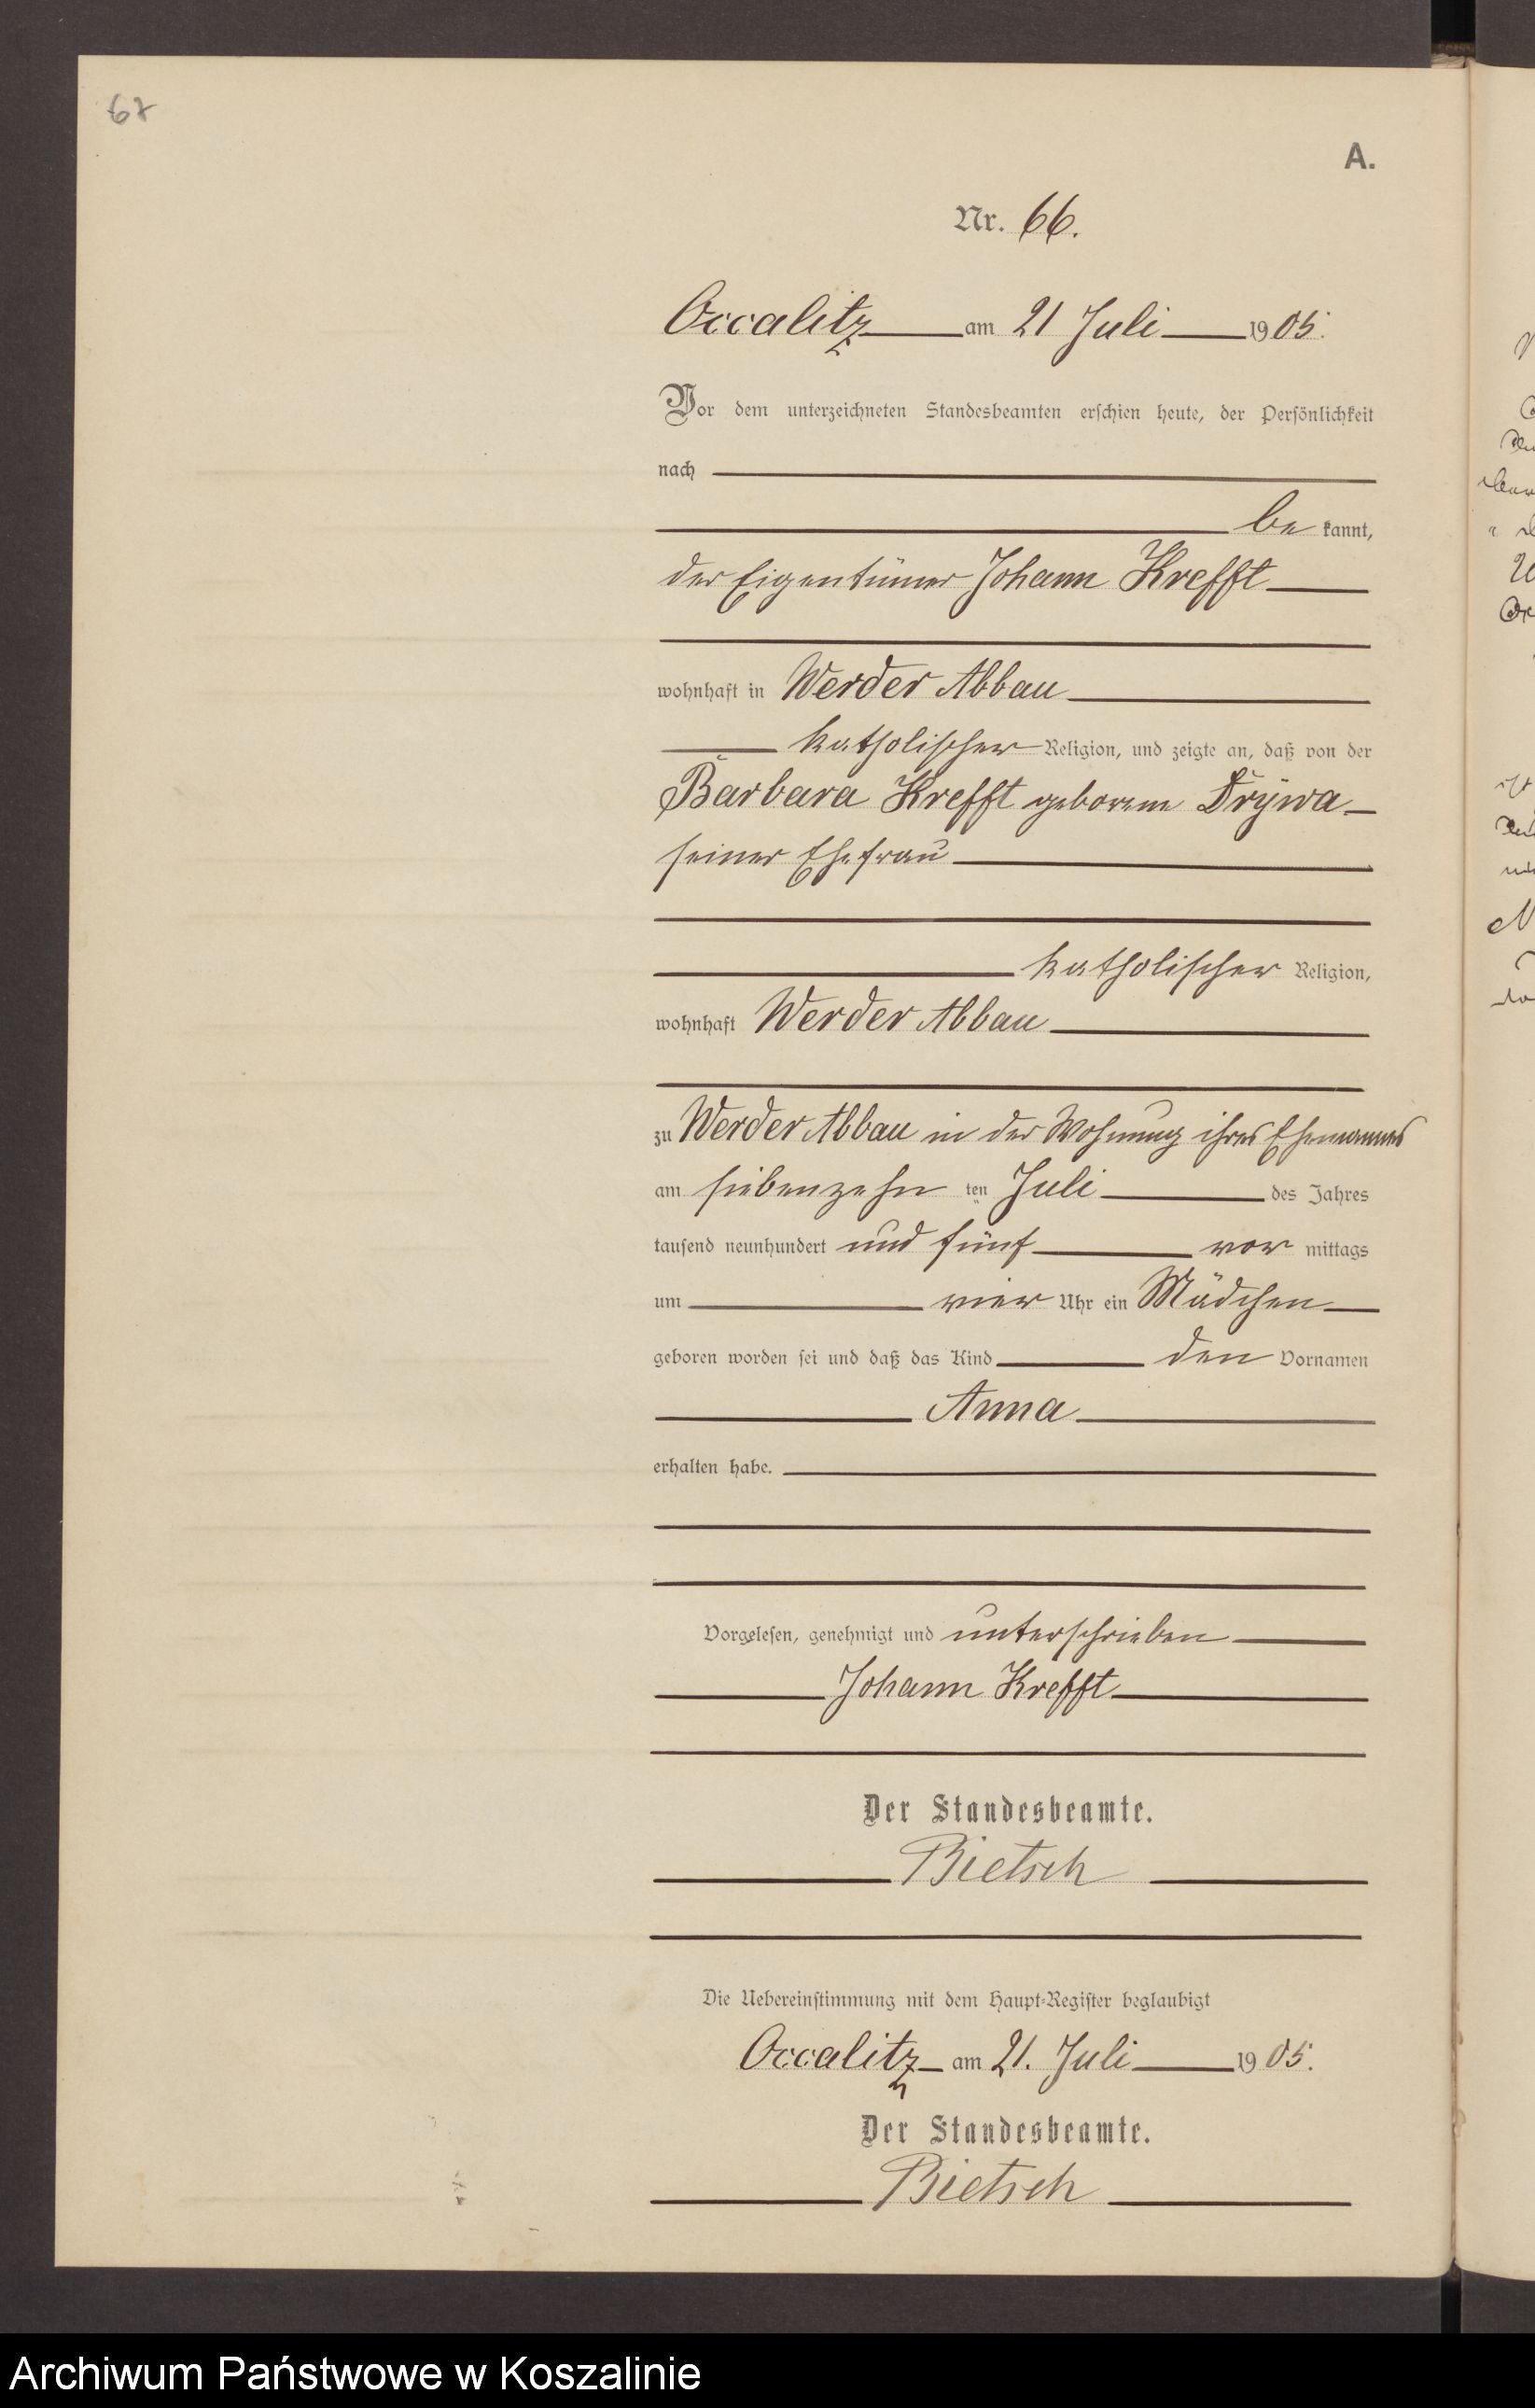 67
A.
Nr. 66.
Occalitz am 21 Juli 1905.
Vor dem unterzeichneten Standesbeamten erschien heute, der Persönlichkeit
nach
be kannt,
der Eigentümer Johann Krefft
wohnhaft in Werder Abbau
katholischer Religion, und zeigte an, daß von der
Barbara Krefft geborene Drÿwa
seiner Ehefrau
katholischer Religion,
wohnhaft Werder Abbau
zu Werder Abbau in der Wohnung ihres Ehemannes
am siebenzehn ten Juli des Jahres
tausend neunhundert und fünf vor mittags
um vier Uhr ein Mädchen
geboren worden sei und daß das Kind den Vornamen
Anna
erhalten habe.
Vorgelesen, genehmigt und unterschrieben
Johann Krefft
Der Standesbeamte.
Bietsch
Die Uebereinstimmung mit dem Haupt-Register beglaubigt
Occalitz am 21. Juli 1905.
Der Standesbeamte.
Bietsch
Archiwum Państwowe w Koszalinie